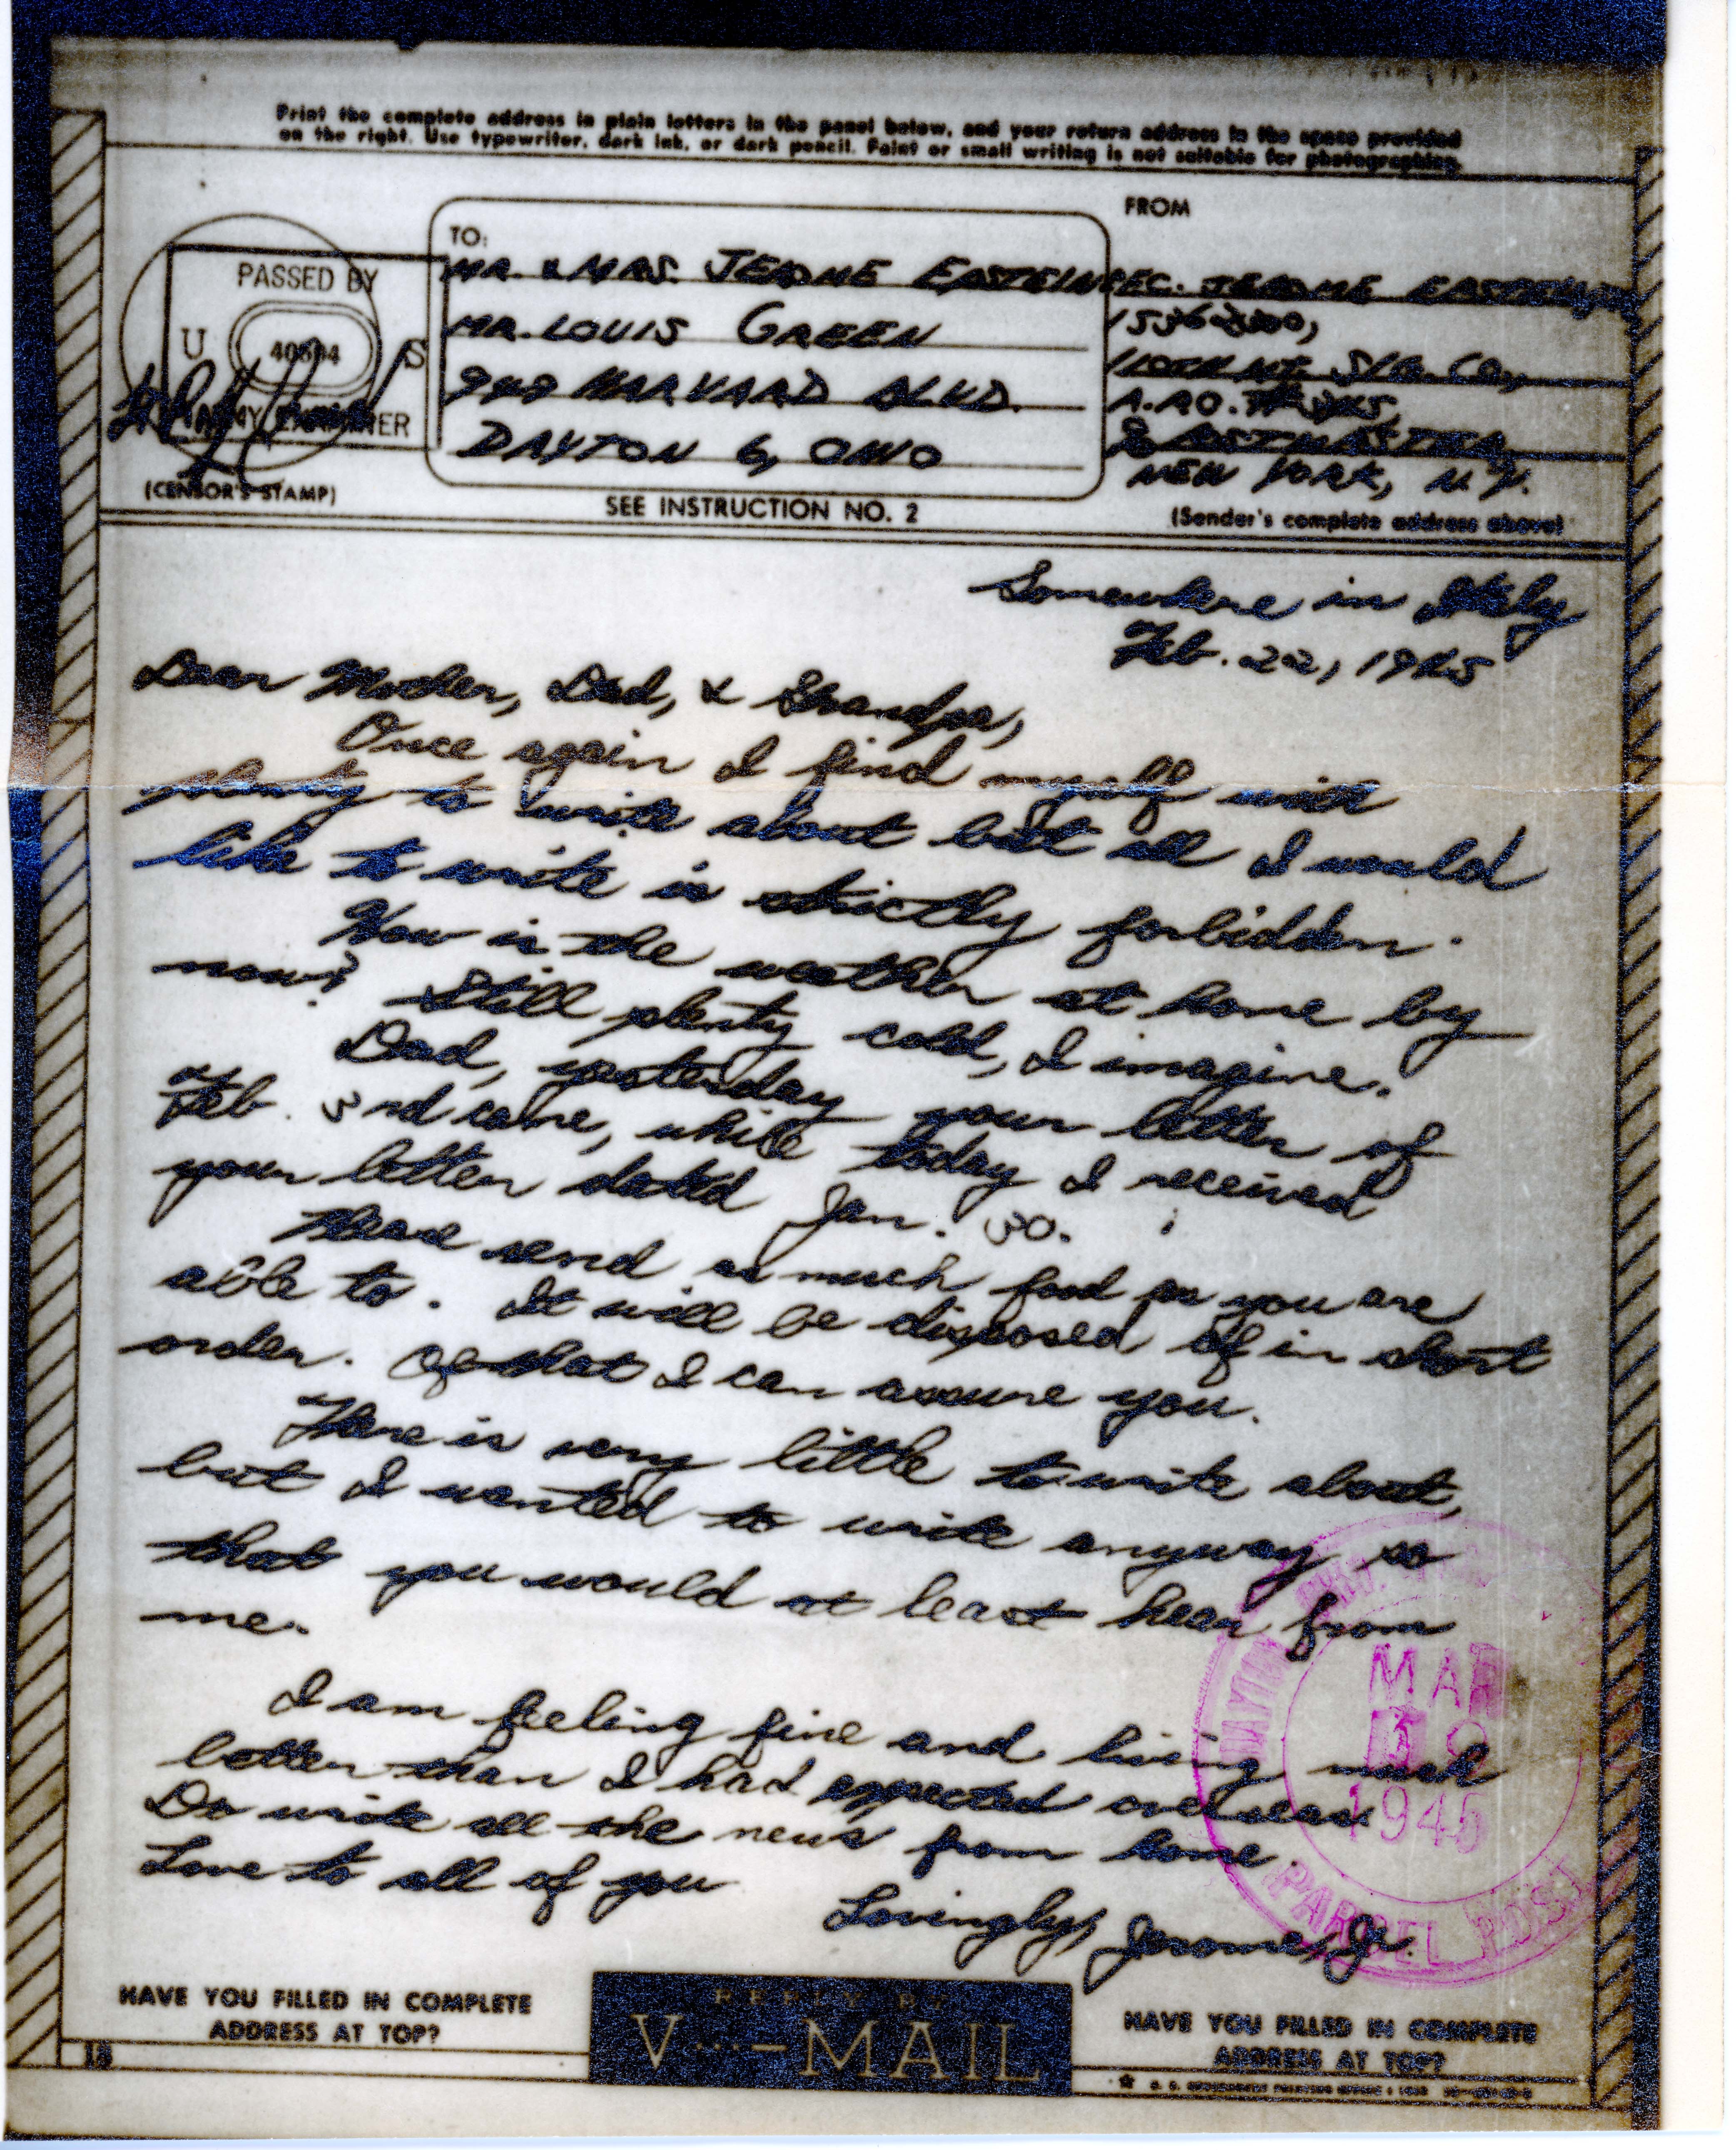 Print the complete address in plain letters in the panel below, and your return address in the space provided
on the right. Use typewriter, dark ink, or dark pencil. Faint or small writing is not suitable for photographing.
FROM
TO:
MR. & MRS. JEROME
MR. LOUIS GREEN
949 HARVARD BLVD.
DAYTON 6, OHIO
PFC. JEROME
10TH MT. SIG. CO.,
A.P.O.
% POSTMASTER,
NEW YORK, N.Y.
PASSED BY
U S
ARMY EXAMINER
(CENSOR'S STAMP)
SEE INSTRUCTION NO. 2
(Sender's complete address above)
Somewhere in Italy
Feb. 22, 1945
Dear Mother, Dad, & Grandpa,
Once again I find myself with
plenty to write about but all I would
like to write is strictly forbidden.
How is the weather at home by
now? Still plenty cold, I imagine.
Dad, yesterday your letter of
Feb. 3rd came, while today I received
your letter dated Jan. 30.
Please send as much food as you are
able to. It will be disposed of in short
order. Of that I can assure you.
There is very little to write about,
but I wanted to write anyway so
that you would at least hear from
me.
I am feeling fine and living much
better than I had expected overseas.
Do write all the news from home.
Love to all of you
Lovingly, Jerome, Jr.
DAYTON
MAR
1945
PARCEL POST
HAVE YOU FILLED IN COMPLETE
ADDRESS AT TOP?
REPLY BY
V···—MAIL
HAVE YOU FILLED IN COMPLETE
ADDRESS AT TOP?